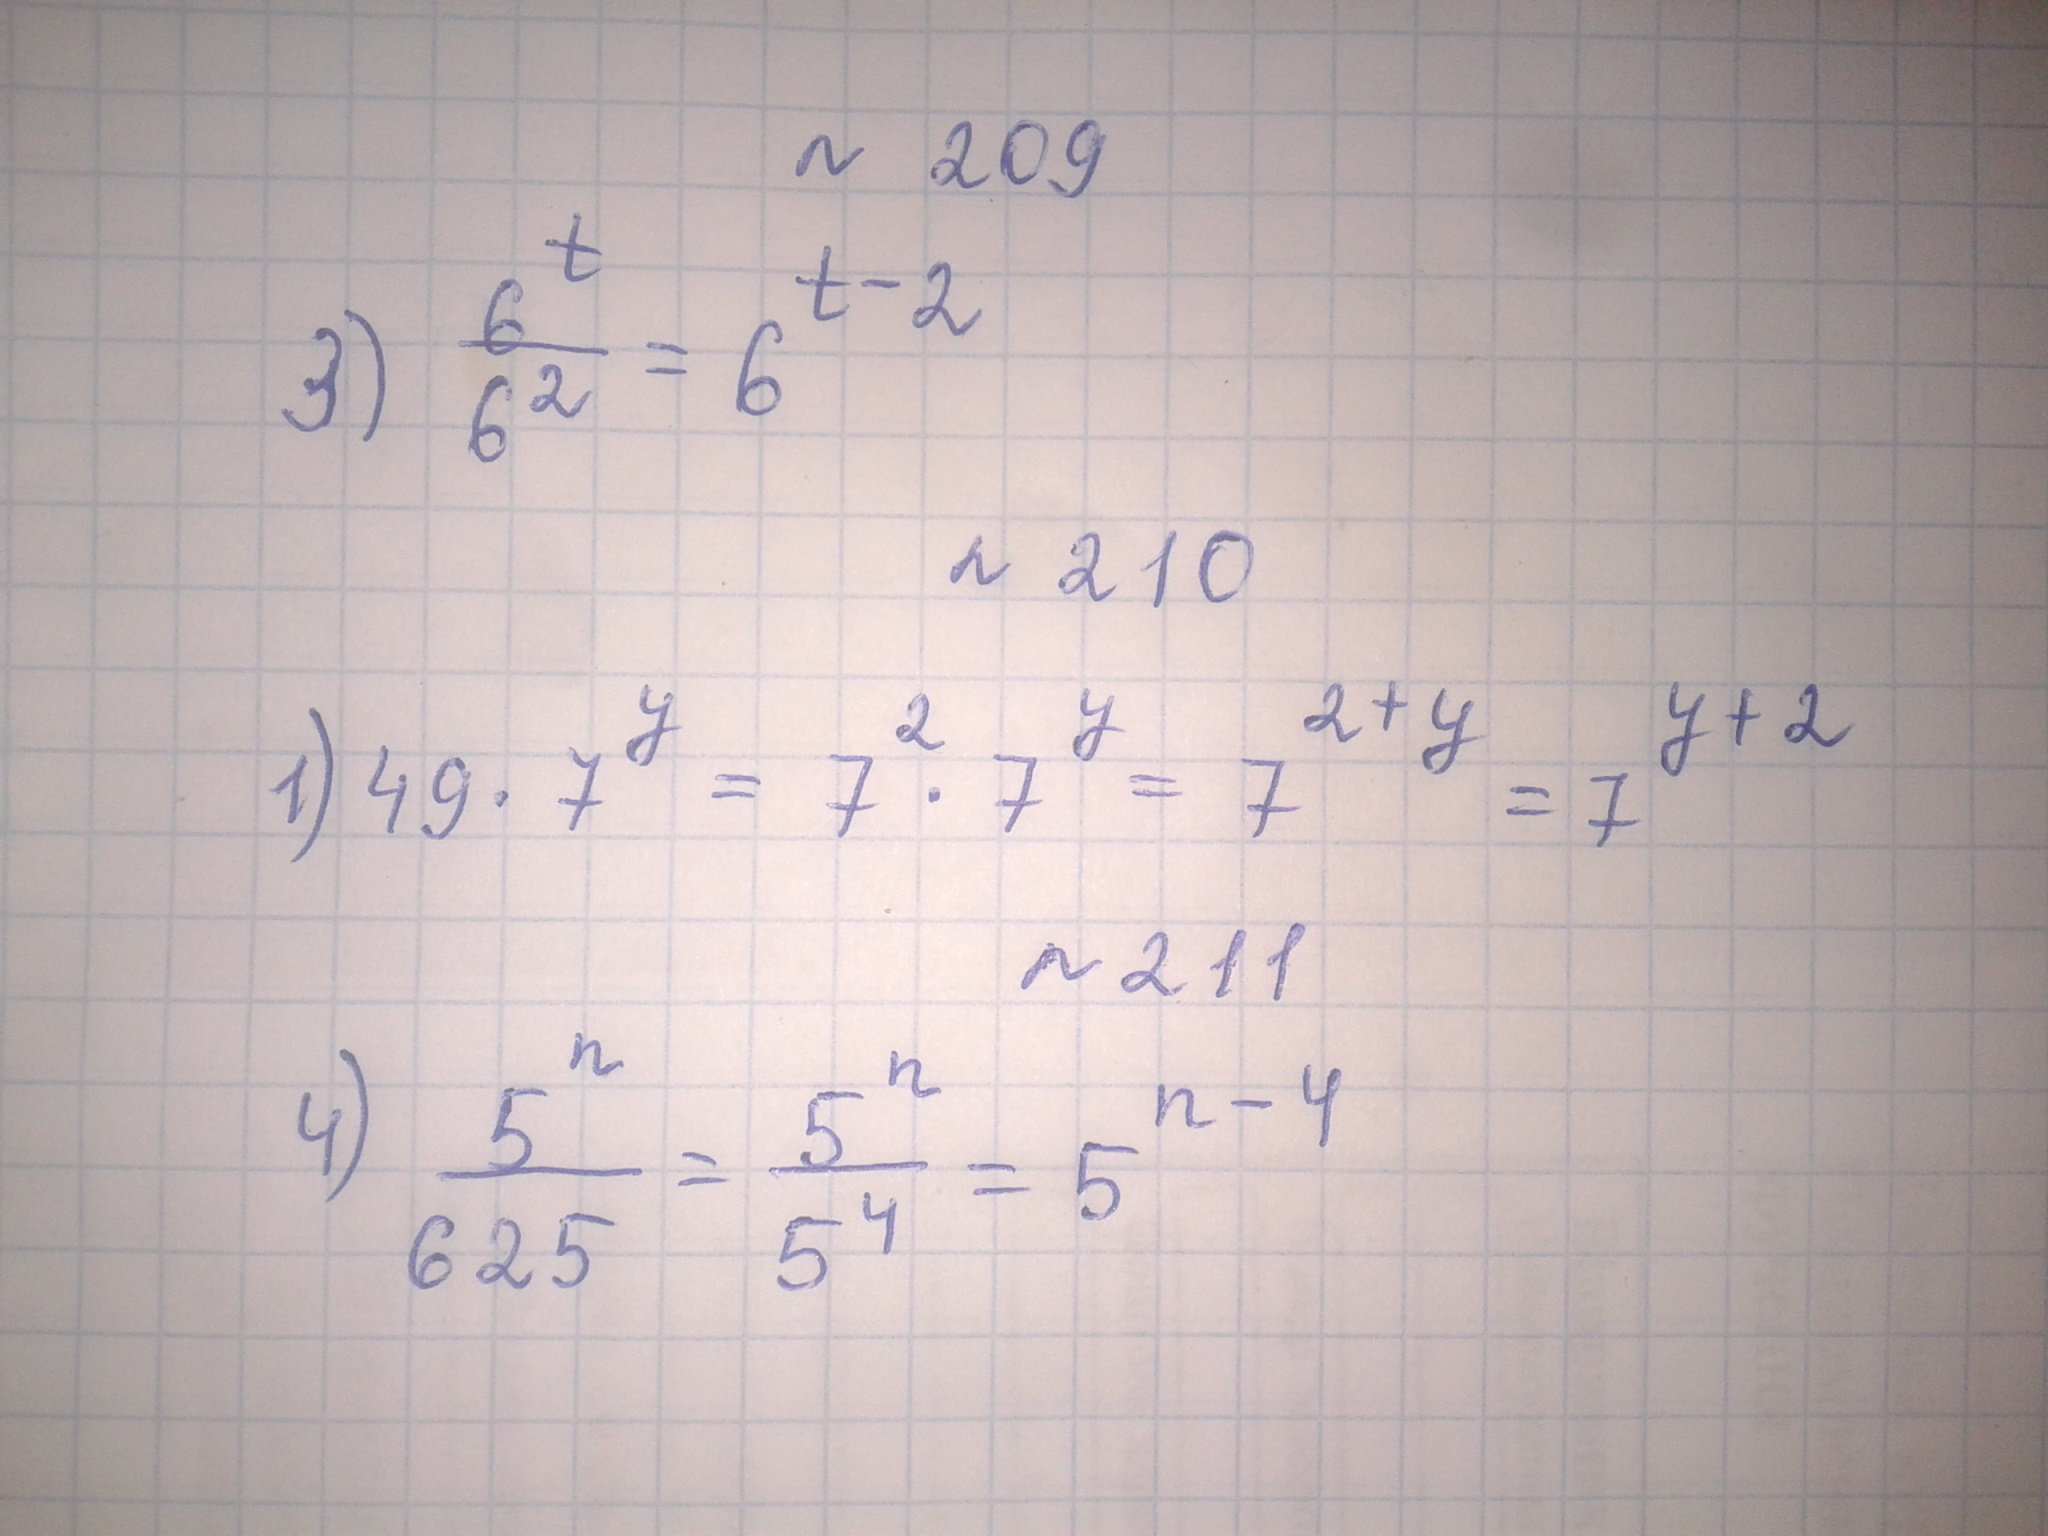 ~ 209
3) 6^t / 6^2 = 6^{t-2}
~ 210
1) 49 · 7^y = 7^2 · 7^y = 7^{2+y} = 7^{y+2}
~ 211
4) 5^n / 625 = 5^n / 5^4 = 5^{n-4}